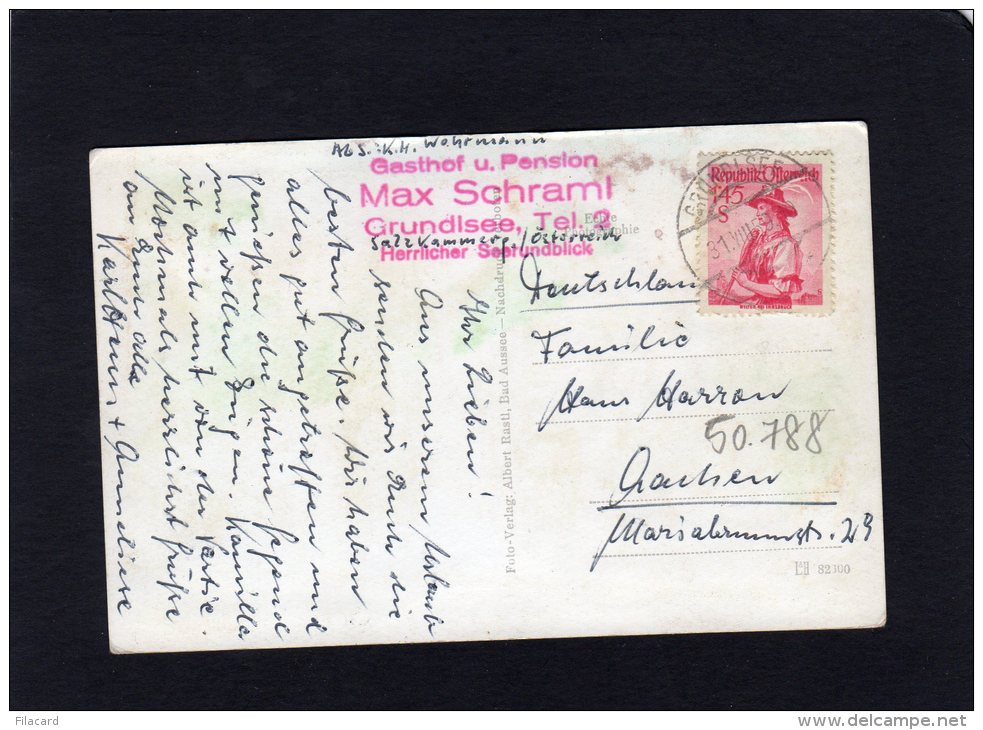 Abs.: K.H. Wahrmann
Gasthof u. Pension
Max Schraml
Grundlsee, Tel. 2
Salzkammerg./Österreich
Herrlicher Seerundblick
Ihr Lieben!
Aus unserem Urlaub
senden wir Euch die
besten Grüße. Wir haben
alles gut angetroffen und
genießen die schöne Gegend
mit vollen Zügen. Kamilla
ist auch mit von der Partie.
Nochmals herzlichst Grüße
an Euch alle
Karlheinz + Anneliese
Foto-Verlag: Albert Rastl, Bad Aussee — Nachdruck
Echte
Photographie
Republik Österreich
1·45
S
GRUNDLSEE
31.VIII
Deutschland
Familie
Hans Marron
50.788
Aachen
Mariabrunnstr. 29
82300
Filacard
http://www.delcampe.net